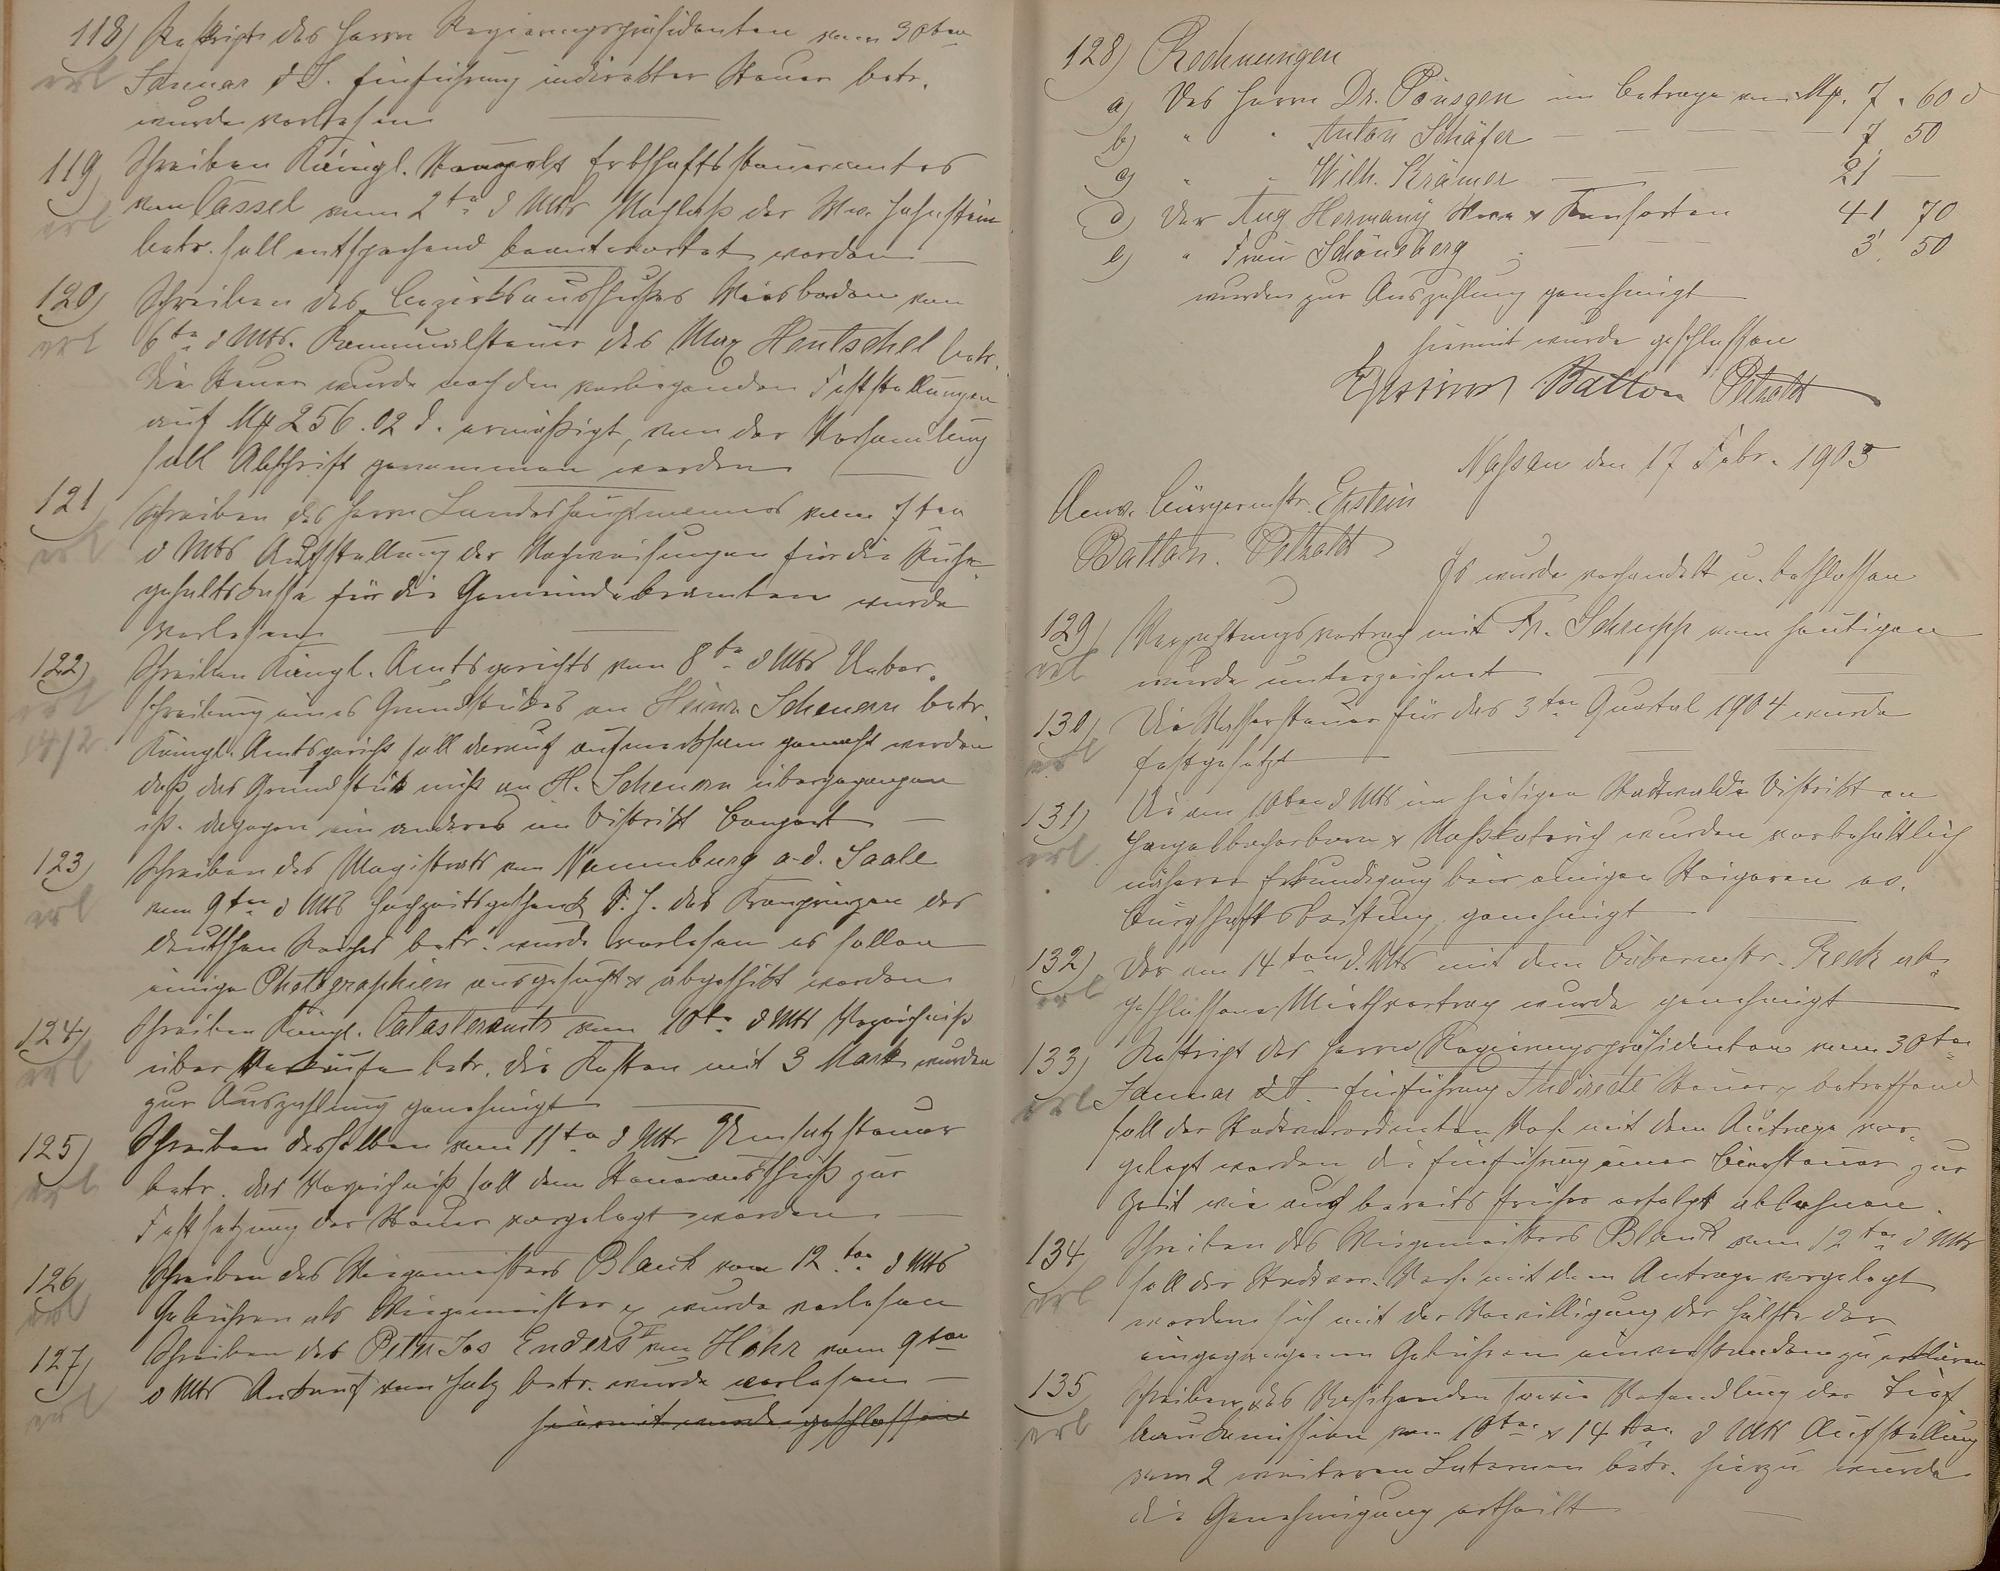 118) Reskript des Herrn Regierungspräsidenten vom 30ten
erl Januar d J. Einführung indirekter Steuer betr.
wurde verlesen
119) Schreiben Königl. Erbschaftssteueramtes
erl von Cassel vom 2ten d Mts Nachlaß der Ww. Hahnstein
betr. soll entsprechend beantwortet werden
120) Schreiben des Bezirksausschußes Wiesbaden vom
erl 6ten d Mts. Kommunalsteuer des Max Hentschel betr.
Die Steuer wurde nach den vorliegenden Feststellungen
auf Mk 256.02 d. ermäßigt, von der Verhandlung
soll Abschrift genommen werden
121 Schreiben des Herrn Landeshauptmannes vom 7ten
erl d Mts Aufstellung der Nachweisungen für die Ruhe-
gehaltskasse für die Gemeindebeamten wurde
verlesen
122) Schreiben Königl. Amtsgerichts vom 8ten d Mts Ueber-
erl schreibung eines Grundstückes an Heinr. Schemann betr.
14/2. Königl. Amtsgericht soll darauf aufmerksam gemacht werden
daß das Grundstück nicht an H. Schemann übergegangen
ist. dagegen ein anderes im Distrikt Bongert
123) Schreiben des Magistrats von Naumburg a.d. Saale
erl vom 9ten d Mts Hochzeitsgeschenk S. H. des Kronprinzen des
deutschen Reiches betr. wurde verlesen es sollen
einige Photographien ausgesucht & abgeschickt werden
124) Schreiben Königl. Catasteramts vom 10ten d Mts Verzeichniß
erl über Verkäufe betr. die Kosten mit 3 Mark wurden
zur Auszahlung genehmigt
125) Schreiben desselben vom 11ten d Mts Umsatzsteuer
erl betr. das Verzeichniß soll dem Steuerausschuß zur
Festsetzung der Steuer vorgelegt werden
126) Schreiben des Wiegemeisters Blank vom 12ten d Mts
erl Gebühren als Wiegemeister wurde verlesen
127) Schreiben des Peter Jos Enders II von Höhr vom 9ten
erl d Mts Ankauf von Holz betr. wurde verlesen
hiermit wurde geschlossen
128) Rechnungen
a) Des Herrn Dr. Pönsgen im Betrage von Mk. 7.60 d
b) " " Anton Schäfer 7.50
c) " " Wilh. Krämer 21 —
d) Der Aug Hermany & Konsorten 41 70
e) " Frau Schöneberg 3.50
wurden zur Auszahlung genehmigt
hiermit wurde geschlossen
Epstein Batton Petzoldt
Nassau den 17 Febr. 1905
Anw. Bürgermstr. Epstein
Batton. Petzoldt
Es wurde verhandelt u. beschlossen
129) Verpachtungsvertrag mit Fr. Schrupp vom heutigen
erl wurde unterzeichnet
130) Die Wassersteuer für das 3ten Quartal 1904 wurde
erl festgesetzt
131) Die am 10ten d Mts im hiesigen Stadtwalde Distrikt
erl wurden vorbehaltlich
näherer Erkundigung bei einigen Steigeren
Bürgschaftsleistung, genehmigt
132) Der am 14ten d. Mts mit dem Reck ab-
erl geschlossene Miethvertrag wurde genehmigt
133) Reskript des Herrn Regierungspräsidenten vom 30ten
erl Januar d J. Einführung Indirecte Steuer betreffend
soll der Stadtverordneten Vers. mit dem Antrage vor-
gelegt werden die Einführung einer Biersteuer zur
Zeit wie auch bereits früher erfolgt abzulehnen.
134) Schreiben des Wiegemeisters Blank vom 12ten d Mts
erl soll der Stadtver. Vers. mit dem Antrage vorgelegt
werden sich mit der Bewilligung der Hälfte der
eingegangenen Gebühren einverstanden zu erklären
135) Schreiben des Vorsitzenden sowie Verhandlung der Tief
erl baukommission vom 10ten & 14ten d Mts Aufstellung
von 2 weiteren Laternen betr. hierzu wurde
die Genehmigung ertheilt